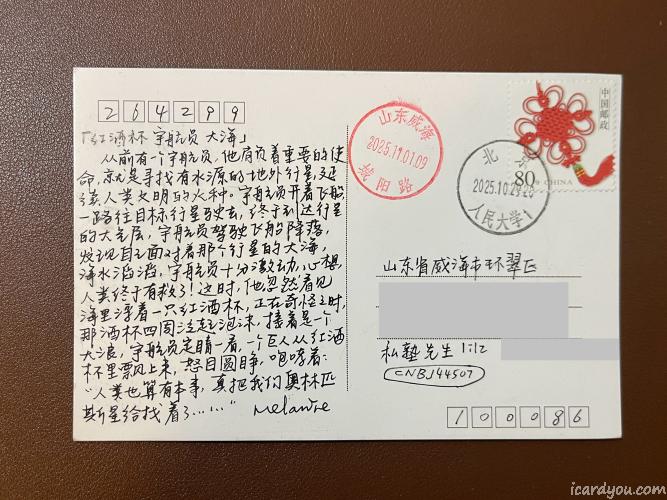 264299
「红酒杯 宇航员 大海」
从前有个宇航员,他肩负着重要的使
命,就是寻找有水源的地外行星,延
续人类文明的火种。宇航员开着飞船
一路往目标行星驶去,终于到达行星
的大气层,宇航员驾驶飞船降落,
发现自己面对着那个行星的大海,
海水滔滔,宇航员十分激动,心想,
人类终于有救了!这时,他忽然看见
海里浮着一只红酒杯,正在奇怪之时,
那酒杯四周泛起泡沫,接着是一个
大浪,宇航员定睛一看,一个巨人从红酒
杯里飘上来,怒目圆睁,咆哮着:
“人类也算有本事,真把我们奥林匹
斯星给找着了……”
山东威海
2025.11.01.09
中国邮政
80
CHINA
北京
2025.10.29.20
人民大学1
山东省威海市环翠区
私塾先生
CNBJ44507
100086
icardyou.com